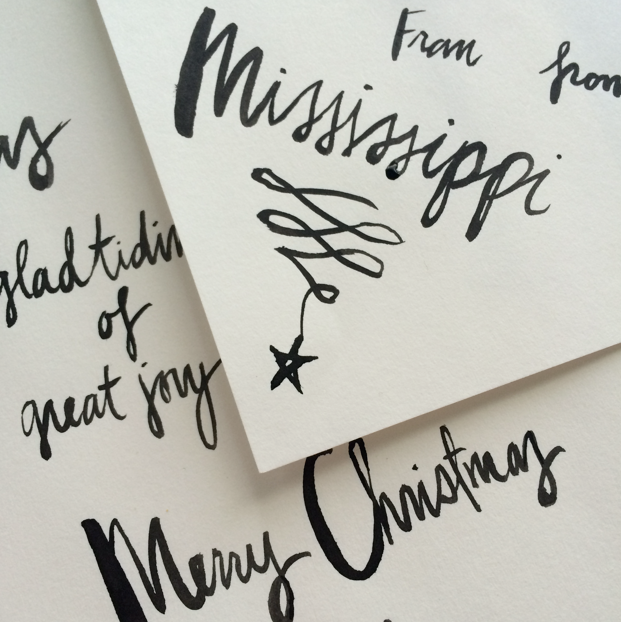 Fran from
Mississippi
glad
of
great joy
Merry Christmas